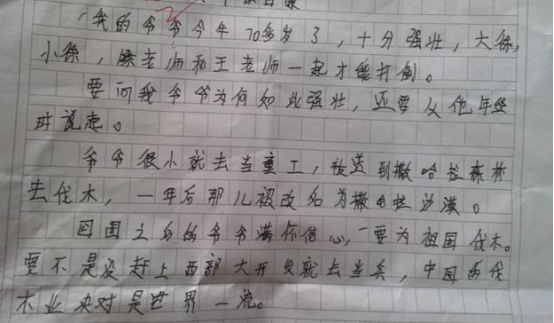 我的爷爷今年70多岁了，十分强壮，大徐，
小徐，徐老师和王老师一起才能打倒。
要问我爷爷为何如此强壮，还要从他年轻
时说起。
爷爷很小就去当童工，被送到撒哈拉森林
去伐木，一年后那儿被改名为撒哈拉沙漠。
回国之后的爷爷满怀信心，要为祖国伐木。
要不是没赶上西部大开发就去当兵，中国的伐
木业决对是世界一流。